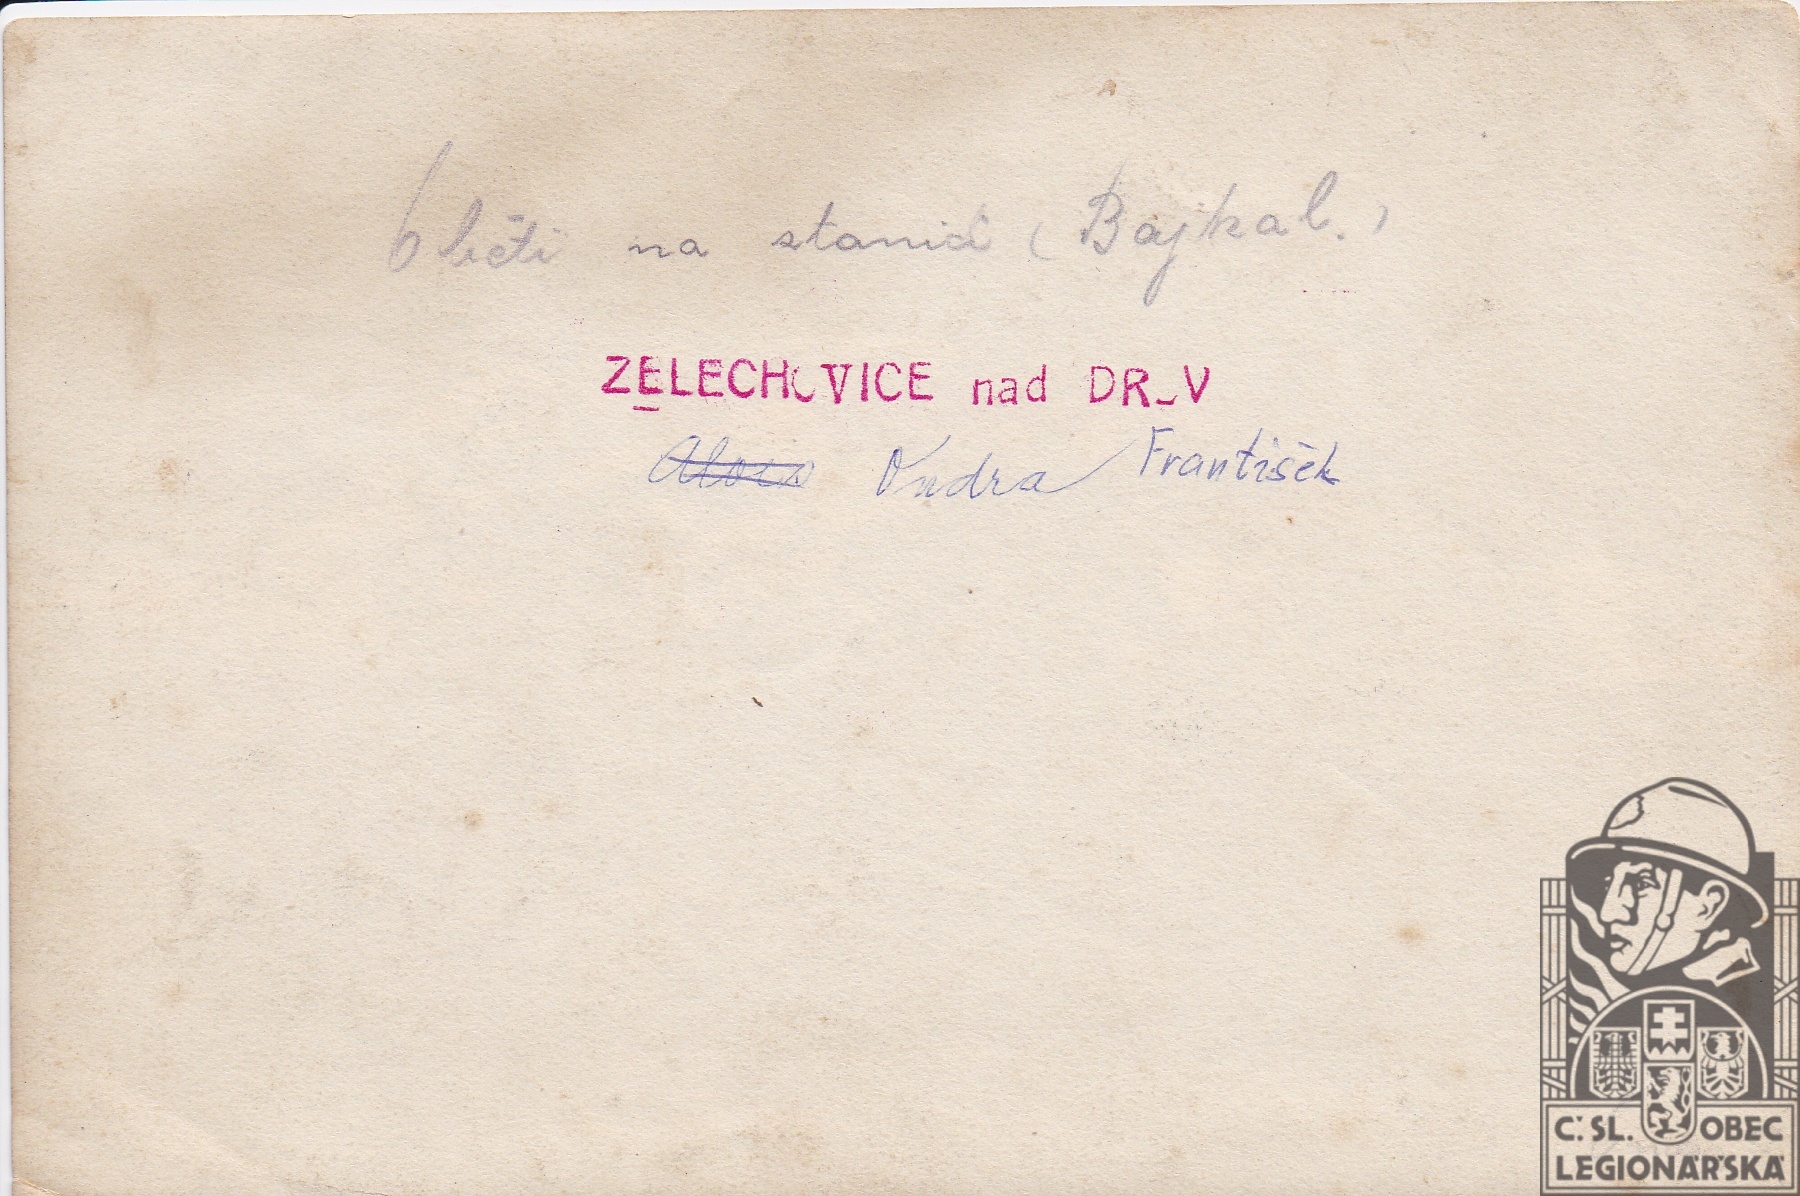 Oběti na stanici (Bajkal.)
ZELECHOVICE nad DR_V
Alois Ondra František
Č. SL. OBEC
LEGIONÁŘSKÁ